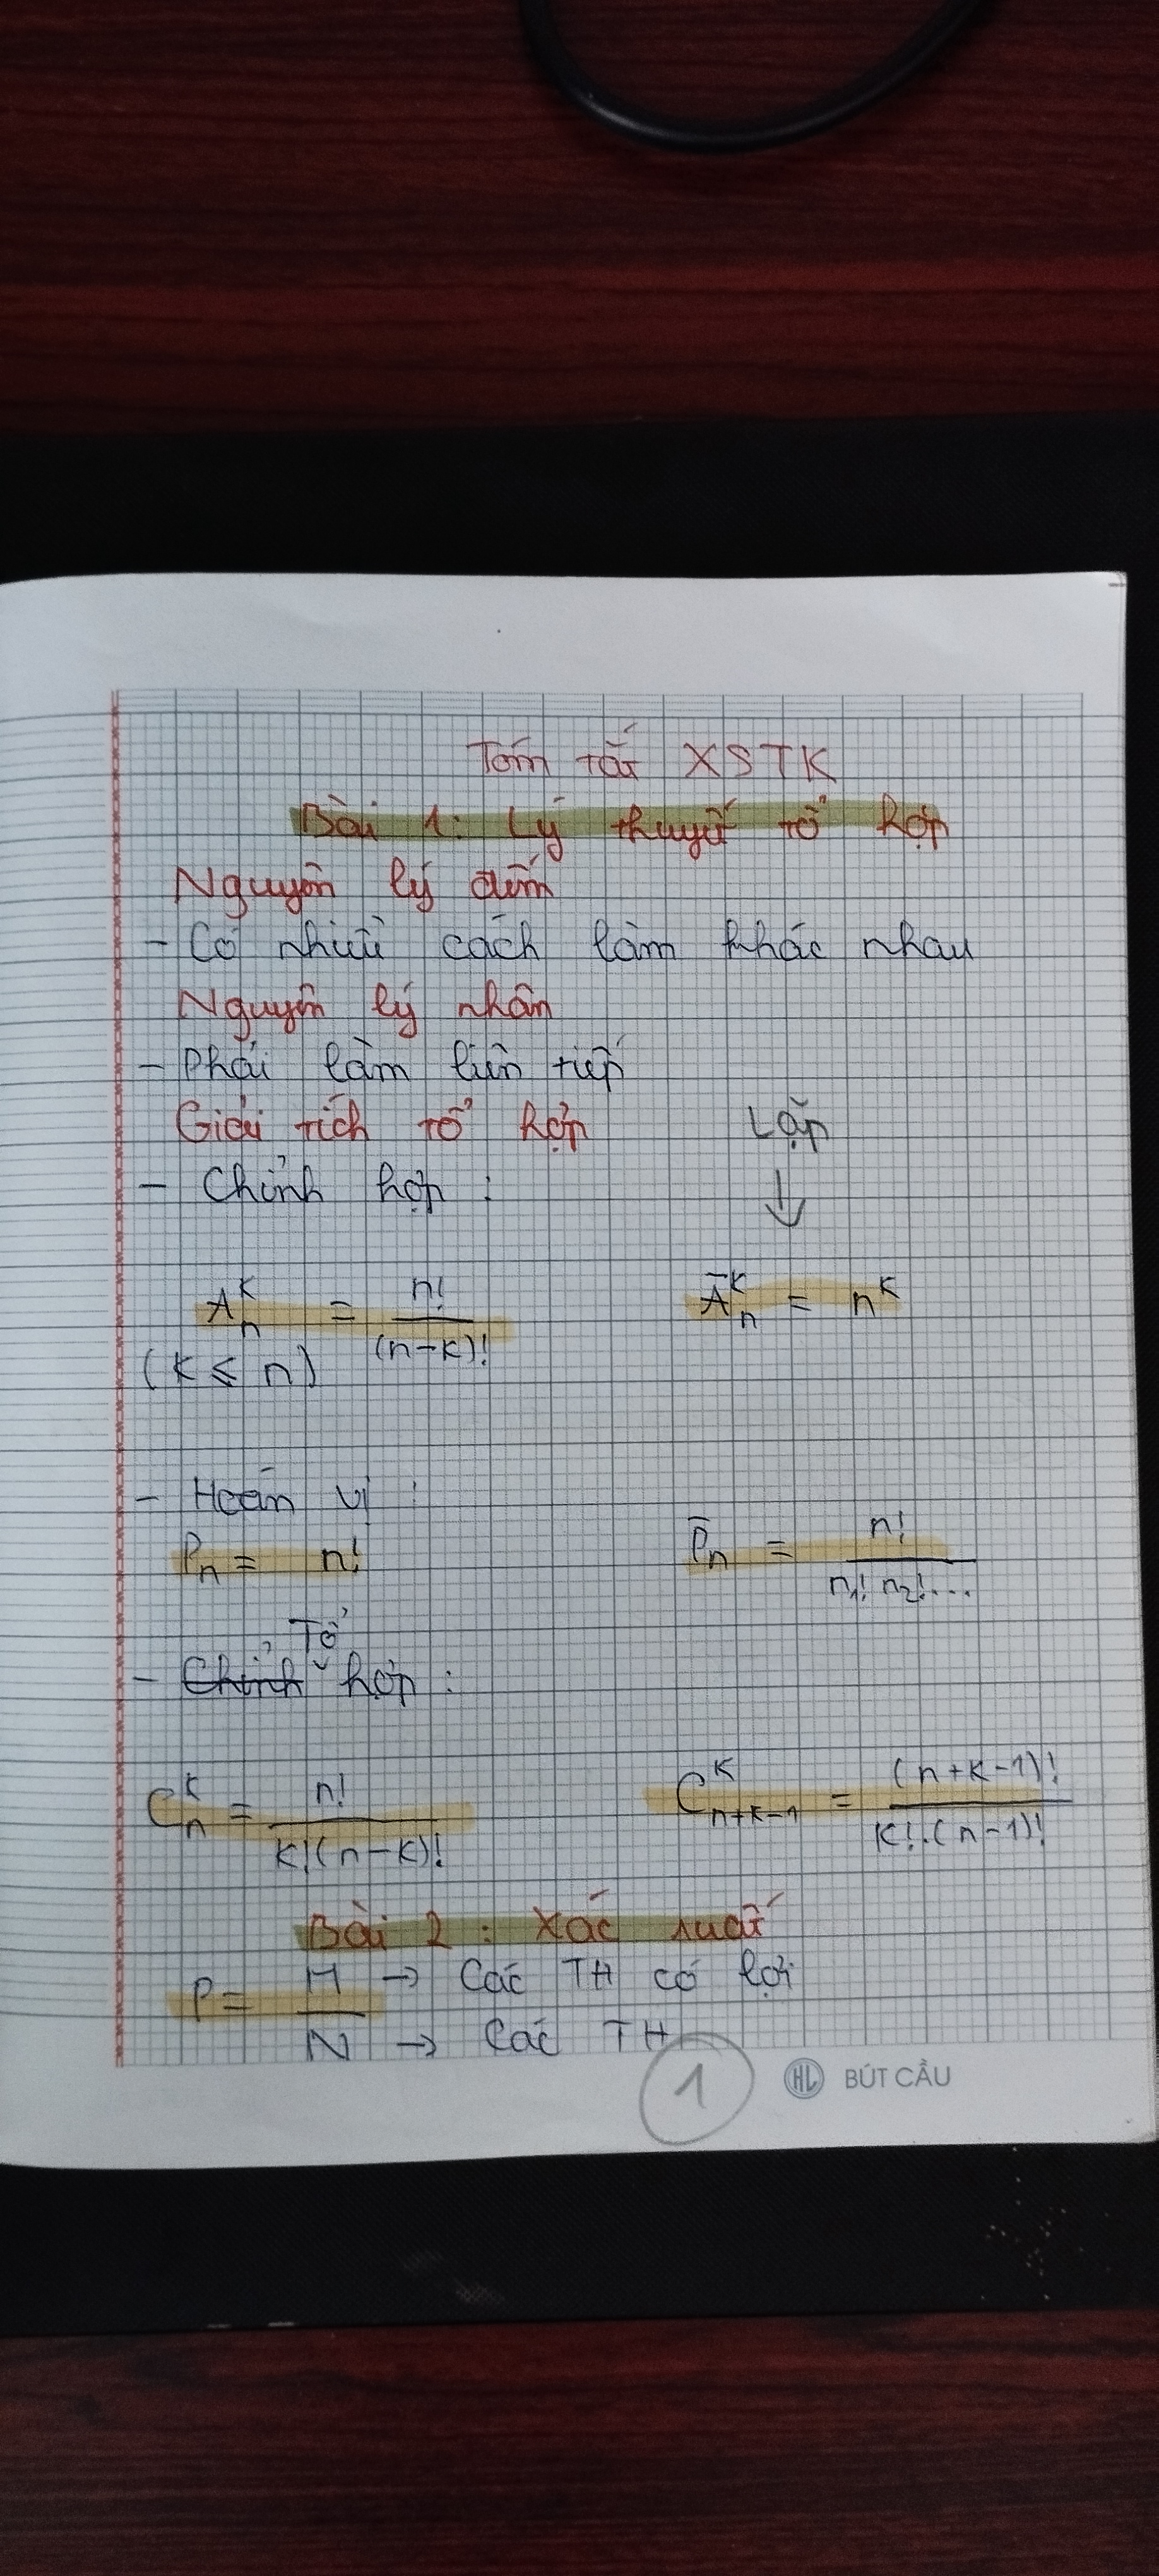 Tóm tắt XSTK
Bài 1: Lý thuyết tổ hợp
Nguyên lý đếm
- Có nhiều cách làm khác nhau
Nguyên lý nhân
- Phải làm liên tiếp
Giải tích tổ hợp Lặp
- Chỉnh hợp : ↓
A_n^k = n!/(n-k)! Ā_n^k = n^k
(k ≤ n)
- Hoán vị :
P_n = n! P̄_n = n!/(n₁! n₂!...)
Tổ
- Chỉnh hợp :
C_n^k = n!/(k!(n-k)!) C_{n+k-1}^k = (n+k-1)!/(k!.(n-1)!)
Bài 2 : Xác suất
P = M → Các TH có lợi
N → Các TH
1 HL BÚT CẦU